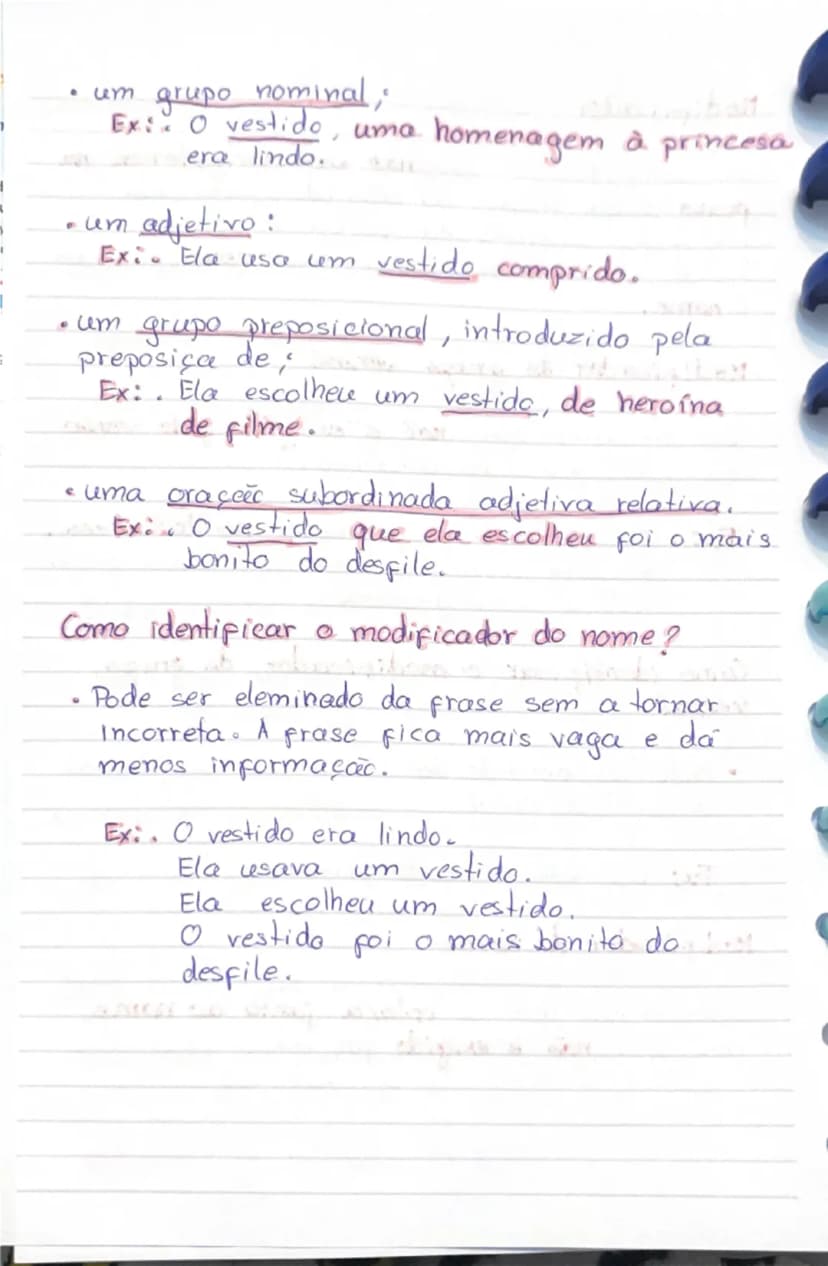 • um grupo nominal;
Ex:. O vestido, uma homenagem à princesa
era lindo.
• um adjetivo:
Ex:. Ela usa um vestido comprido.
• um grupo preposicional, introduzido pela
preposiça de;
Ex:. Ela escolheu um vestido, de heroína
de filme.
• uma oração subordinada adjetiva relativa.
Ex:. O vestido que ela escolheu foi o mais
bonito do desfile.
Como identificar o modificador do nome?
• Pode ser eleminado da frase sem a tornar
incorreta. A frase fica mais vaga e dá
menos informação.
Ex:. O vestido era lindo.
Ela usava um vestido.
Ela escolheu um vestido.
O vestido foi o mais bonito do
desfile.